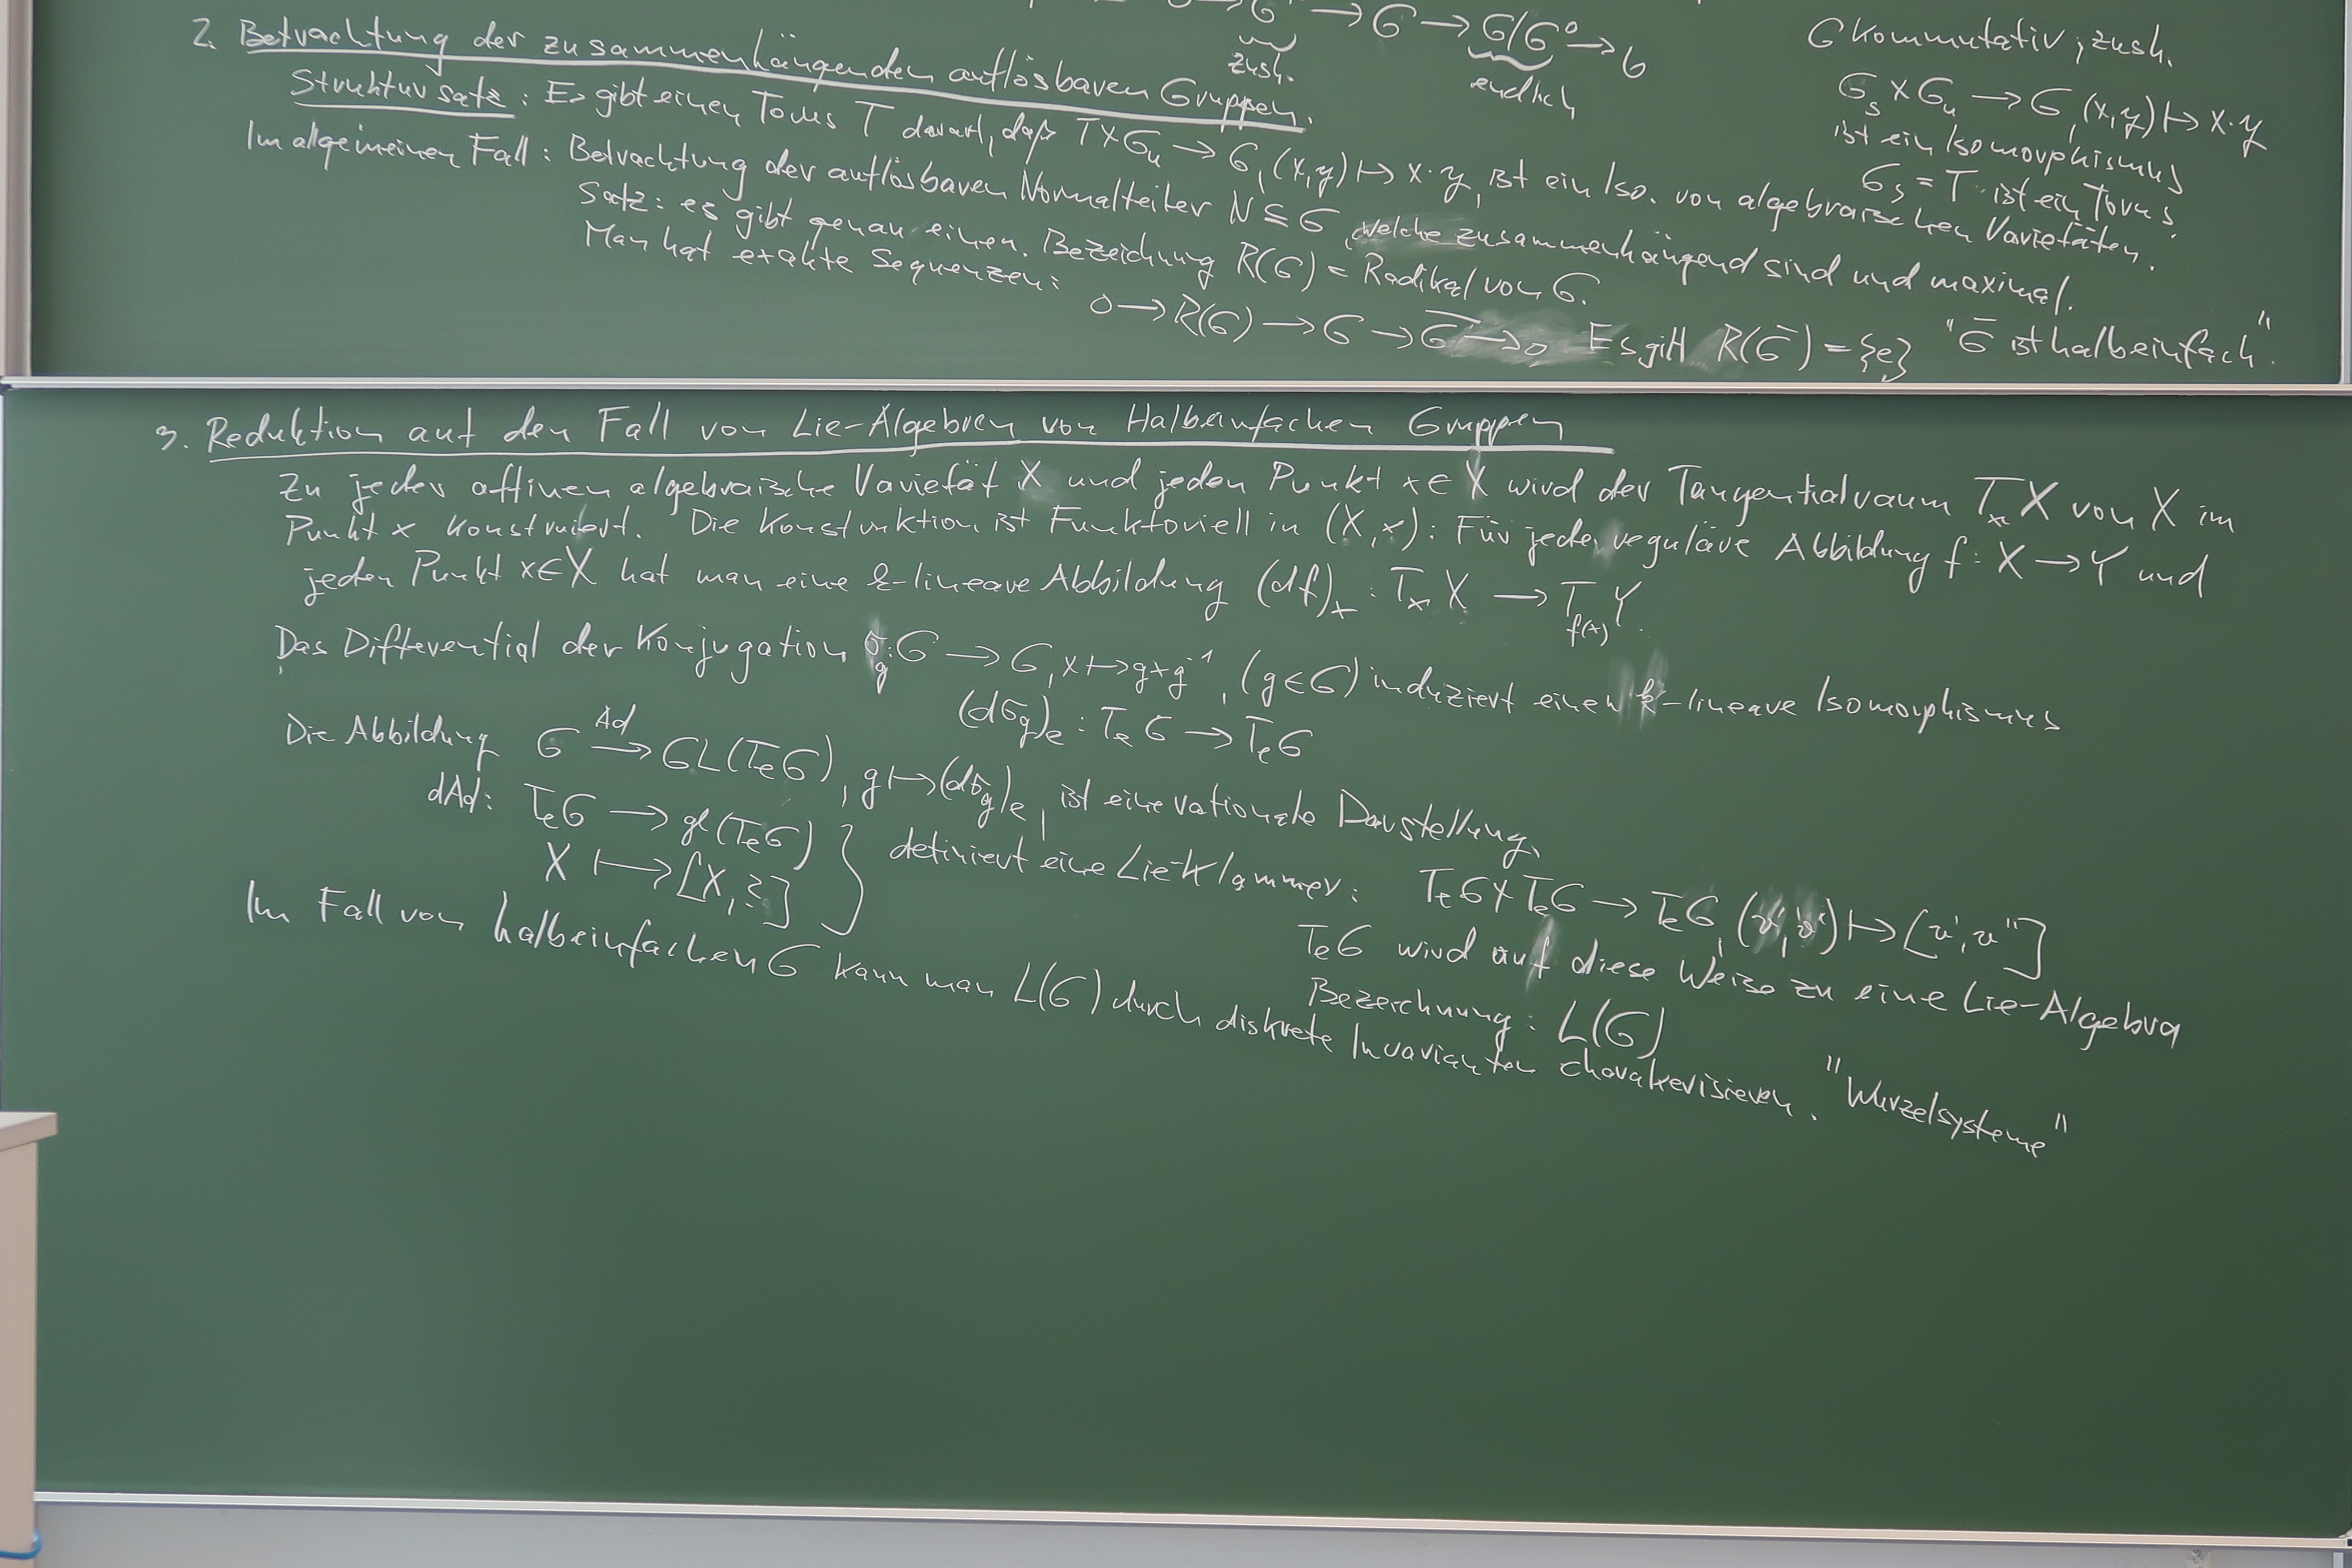 → G → G/G⁰ → 0
zush.
endlich
G kommutativ, zush.
Gₛ × Gᵤ → G, (x,y) ↦ x·y
ist ein Isomorphismus
Gₛ = T ist ein Torus.
2. Betrachtung der zusammenhängenden auflösbaren Gruppen.
Struktursatz: Es gibt einen Torus T derart, daß T×Gᵤ → G, (x,y) ↦ x·y, ist ein Iso. von algebraischen Varietäten.
Im allgemeinen Fall: Betrachtung der auflösbaren Normalteiler N ⊆ G, welche zusammenhängend sind und maximal.
Satz: es gibt genau einen. Bezeichnung R(G) = Radikal von G.
Man hat exakte Sequenzen:
0 → R(G) → G → G̅ → 0 Es gilt R(G̅) = {e} "G̅ ist halbeinfach".
3. Reduktion auf den Fall von Lie-Algebren von Halbeinfachen Gruppen
Zu jeder affinen algebraische Varietät X und jeden Punkt x∈X wird der Tangentialraum TₓX von X im
Punkt x konstruiert. Die Konstruktion ist Funktoriell in (X,x): Für jede reguläre Abbildung f: X → Y und
jeden Punkt x∈X hat man eine k-lineare Abbildung (df)ₓ : TₓX → T_{f(x)}Y.
Das Differential der Konjugation σ_g: G → G, x ↦ gxg⁻¹, (g∈G) induziert einen k-lineare Isomorphismus
(dσ_g)ₑ : TₑG → TₑG
Die Abbildung G →^{Ad} GL(TₑG), g ↦ (dσ_g)ₑ, ist eine rationale Darstellung.
dAd: TₑG → gl(TₑG)
X ↦ [X,?] } definiert eine Lie-Klammer: TₑG×TₑG → TₑG, (v',v'') ↦ [v',v'']
TₑG wird auf diese Weise zu eine Lie-Algebra
Bezeichnung: L(G)
Im Fall von halbeinfachen G kann man L(G) durch diskrete Invarianten charakterisieren. "Wurzelsysteme"